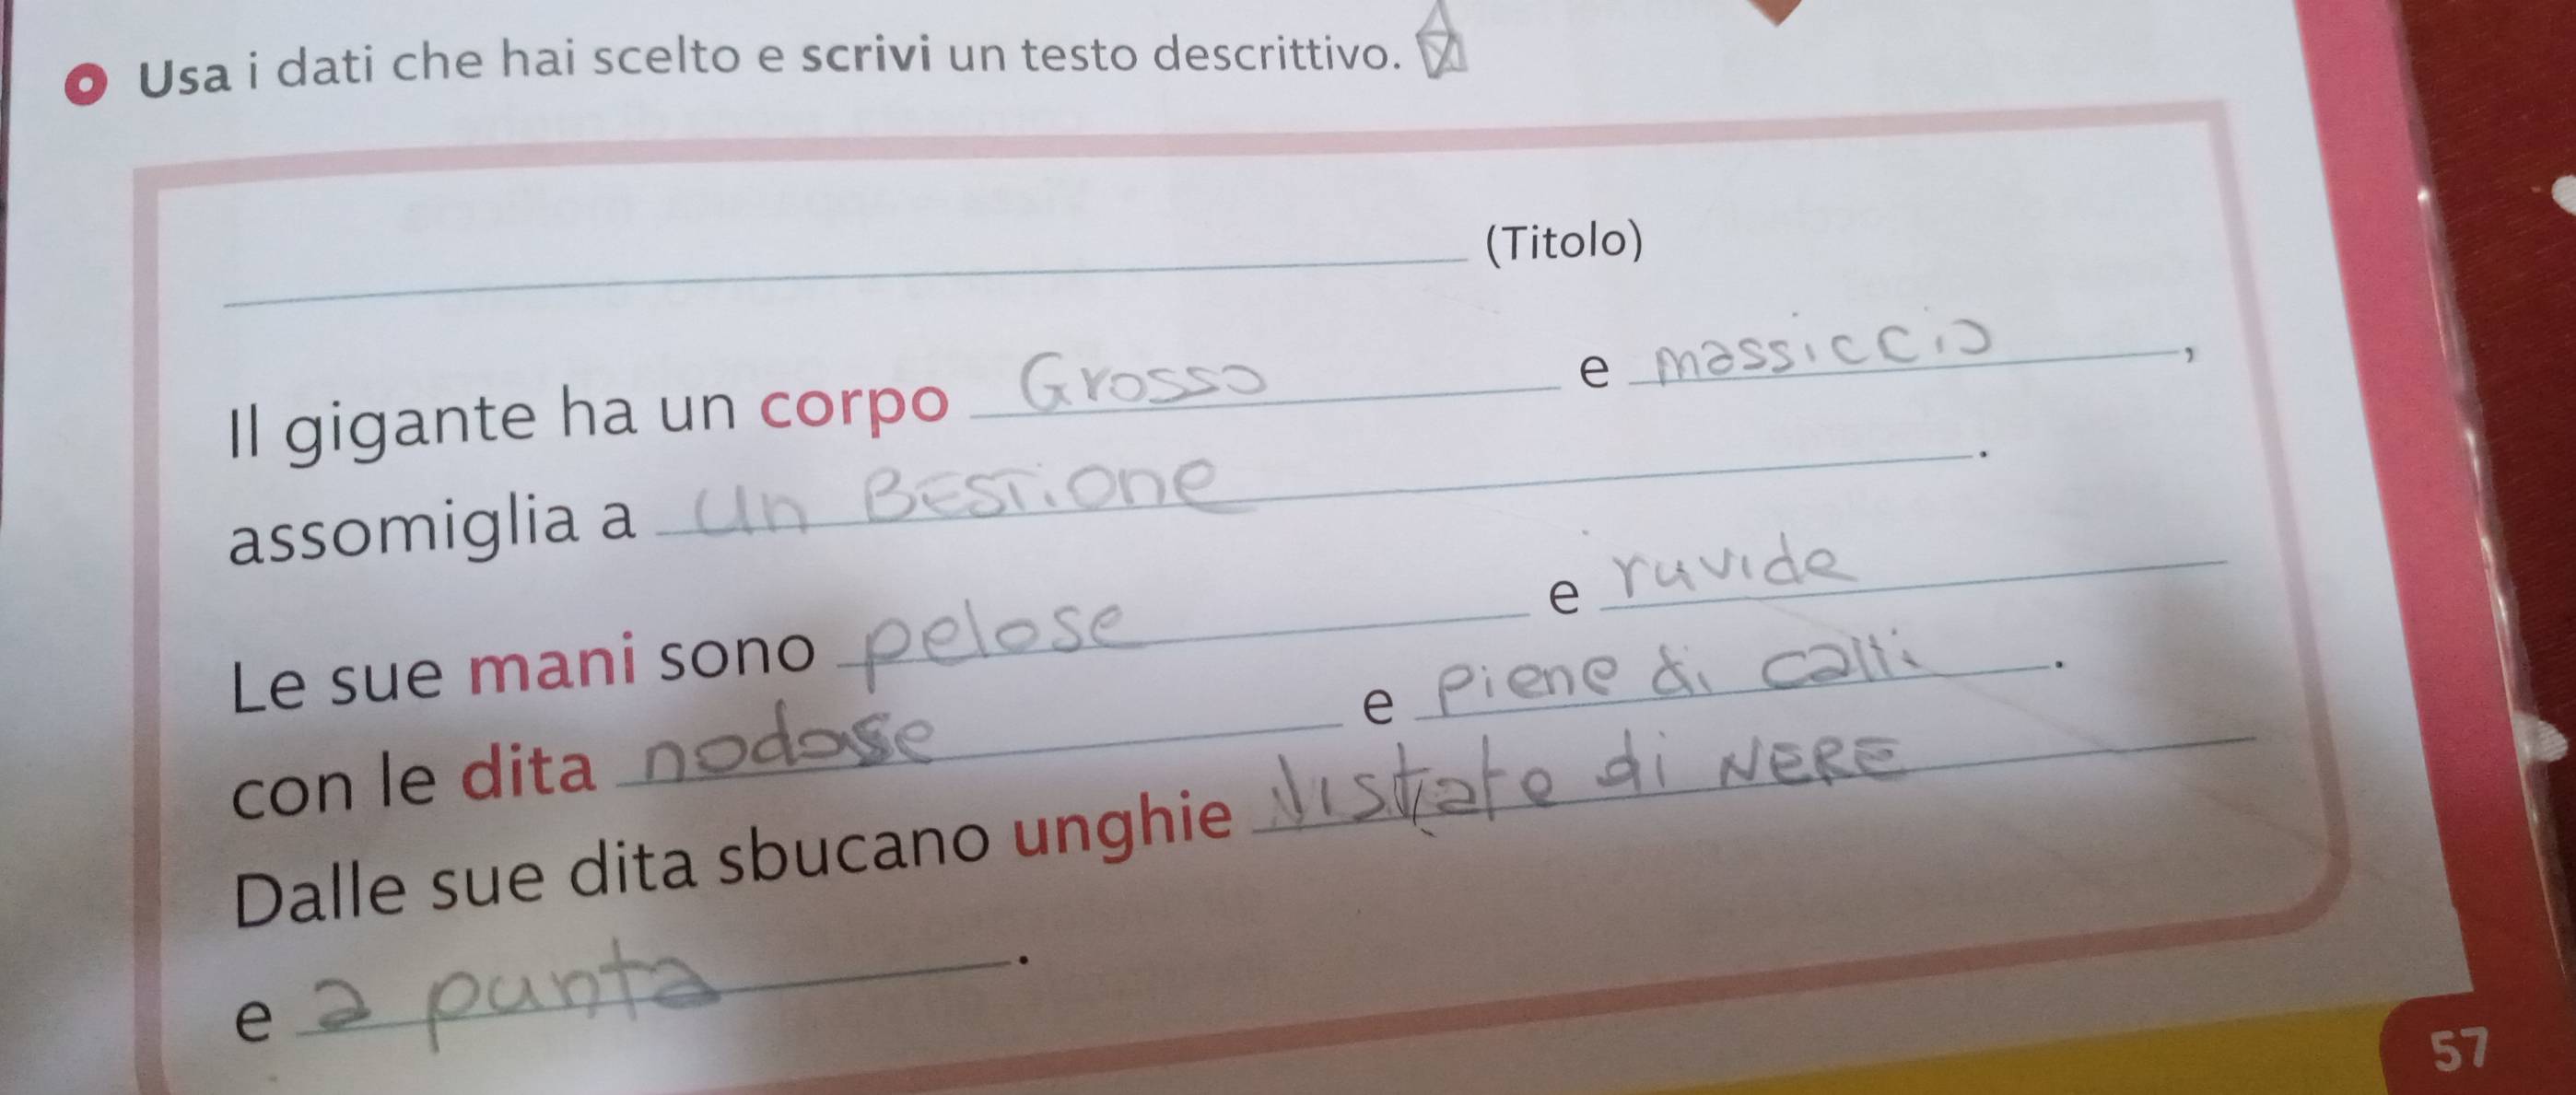 Usa i dati che hai scelto e scrivi un testo descrittivo.
(Titolo)
Il gigante ha un corpo Grosso e massiccio,
assomiglia a un BESTione.
Le sue mani sono pelose e ruvide
con le dita nodose e piene di calli.
Dalle sue dita sbucano unghie listate di NERE
e a punta.
57